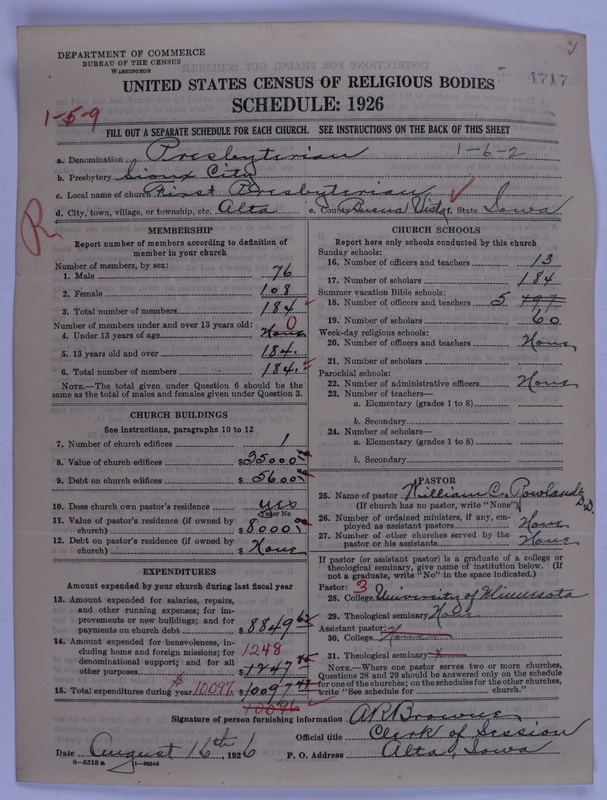 DEPARTMENT OF COMMERCE
BUREAU OF THE CENSUS
WASHINGTON
1717
UNITED STATES CENSUS OF RELIGIOUS BODIES
SCHEDULE: 1926
1-5-9
FILL OUT A SEPARATE SCHEDULE FOR EACH CHURCH. SEE INSTRUCTIONS ON THE BACK OF THIS SHEET
a. Denomination Presbyterian 1-6-2
b. Presbytery Sioux City
c. Local name of church First Presbyterian
d. City, town, village, or township, etc. Alta e. County Buena Vista f. State Iowa
R
MEMBERSHIP
Report number of members according to definition of
member in your church
Number of members, by sex:
1. Male 76
2. Female 108
3. Total number of members 184
Number of members under and over 13 years old:
4. Under 13 years of age None 0
5. 13 years old and over 184
6. Total number of members 184
NOTE.—The total given under Question 6 should be the
same as the total of males and females given under Question 3.
CHURCH BUILDINGS
See instructions, paragraphs 10 to 12
7. Number of church edifices 1
8. Value of church edifices $35000.00
9. Debt on church edifices $5600.00
10. Does church own pastor's residence yes
Yes or No
11. Value of pastor's residence (if owned by
church) $8000.00
12. Debt on pastor's residence (if owned by
church) $ None
EXPENDITURES
Amount expended by your church during last fiscal year
13. Amount expended for salaries, repairs,
and other running expenses; for im-
provements or new buildings; and for
payments on church debt $8849
14. Amount expended for benevolences, in-
cluding home and foreign missions; for
denominational support; and for all
other purposes 1248 $1247
15. Total expenditures during year 10097 $10097
10096
CHURCH SCHOOLS
Report here only schools conducted by this church
Sunday schools:
16. Number of officers and teachers 13
17. Number of scholars 184
Summer vacation Bible schools:
18. Number of officers and teachers 5 197
19. Number of scholars 60
Week-day religious schools:
20. Number of officers and teachers None
21. Number of scholars
Parochial schools:
22. Number of administrative officers None
23. Number of teachers—
a. Elementary (grades 1 to 8)
b. Secondary
24. Number of scholars—
a. Elementary (grades 1 to 8)
b. Secondary
PASTOR
25. Name of pastor William C. Rowland D.D.
(If church has no pastor, write "None")
26. Number of ordained ministers, if any, em-
ployed as assistant pastors None
27. Number of other churches served by the
pastor or his assistants None
If pastor (or assistant pastor) is a graduate of a college or
theological seminary, give name of institution below. (If
not a graduate, write "No" in the space indicated.)
Pastor: 3
28. College University of Minnesota
29. Theological seminary None
Assistant pastor:
30. College None
31. Theological seminary
NOTE.—Where one pastor serves two or more churches,
Questions 28 and 29 should be answered only on the schedule
for one of the churches; on the schedules for the other churches,
write "See schedule for church."
Signature of person furnishing information A R Browne
Official title Clerk of Session
Date August 16th, 1926 P. O. Address Alta, Iowa
8-5518 a